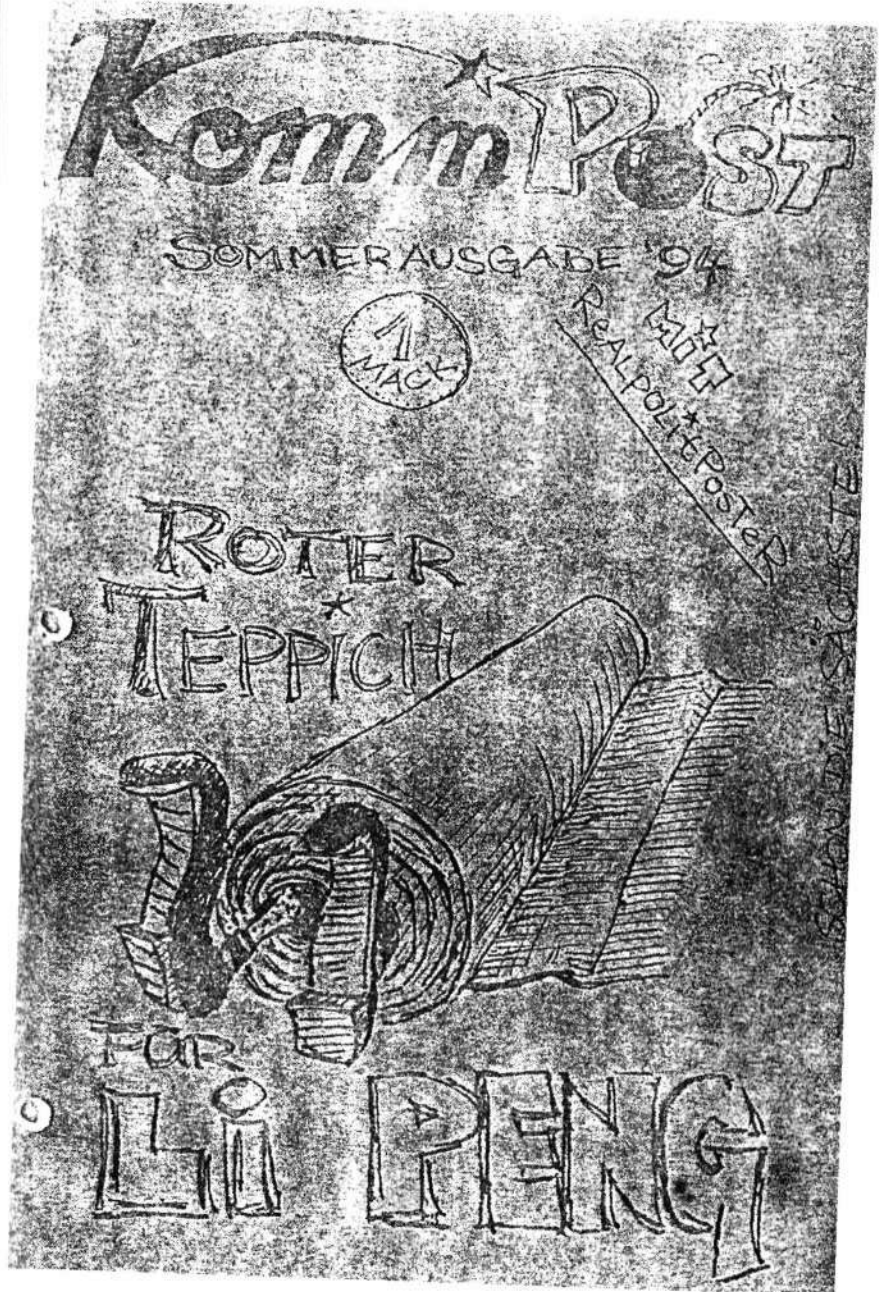 KommPOST
SOMMERAUSGABE '94
1
MACK
MiT
REALPOLiTPOSTeR
SCHON DiE SÄCHSTE!
ROTER
TEPPICH
FÜR
Li PENG